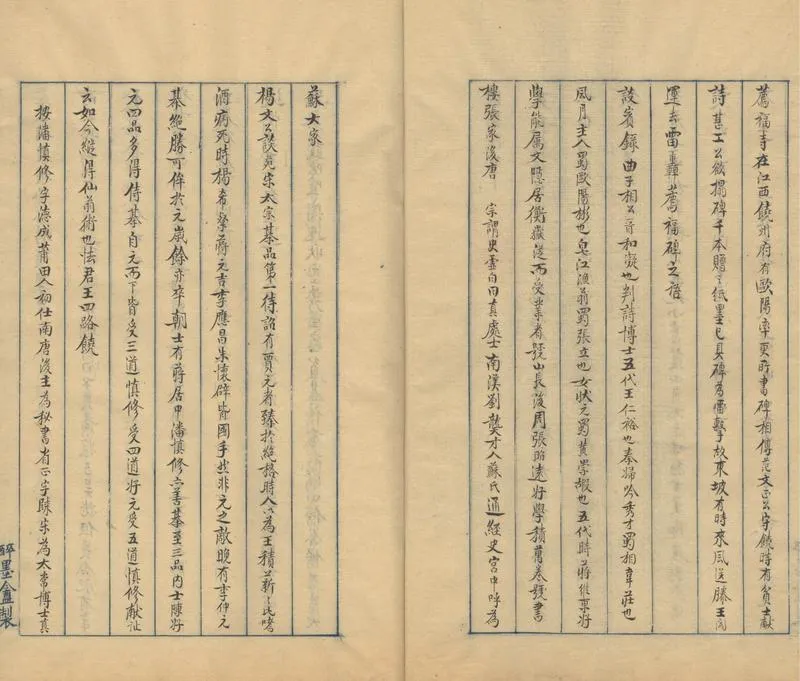 薦福寺在江西饒州府有歐陽率更所書碑相傳范文正公守饒時有貧士獻
詩甚工公欲搨碑千本贈之紙墨已具碑為雷擊故東坡有時來風送滕王閣
運去雷轟薦福碑之語
設賓錄曲子相公晉和凝也判詩博士五代王仁裕也秦婦吟秀才蜀相韋莊也
風月主人蜀歐陽彬也皂江漁翁蜀張立也女狀元蜀黃崇嘏也五代時蔣維東好
學能屬文隱居衡嶽從而受業者號山長後周張昭遠好學積萬卷號書
樓張家後唐 宗謂史虛白曰真處士南漢劉龑才人蘇氏通經史宮中呼為
蘇大家
楊文公談苑宋太宗棊品第一待詔有賈元者臻於絕格時人以為王積薪之比嗜
酒病死時楊希粲蔣元吉李應昌朱懷辟皆國手然非元之敵晚有李仲元
棊絕勝可侔於元歲餘亦卒朝士有蔣居中潘慎修亦善棊至三品內士陳好
元四品多得侍棊自元而下皆受三道慎修受四道好元受五道慎修獻詩
云如今縱得仙翁術也怯君王四路饒
按潘慎修字德成莆田人初仕南唐後主為秘書省正字歸宋為太常博士真
醉墨盦製